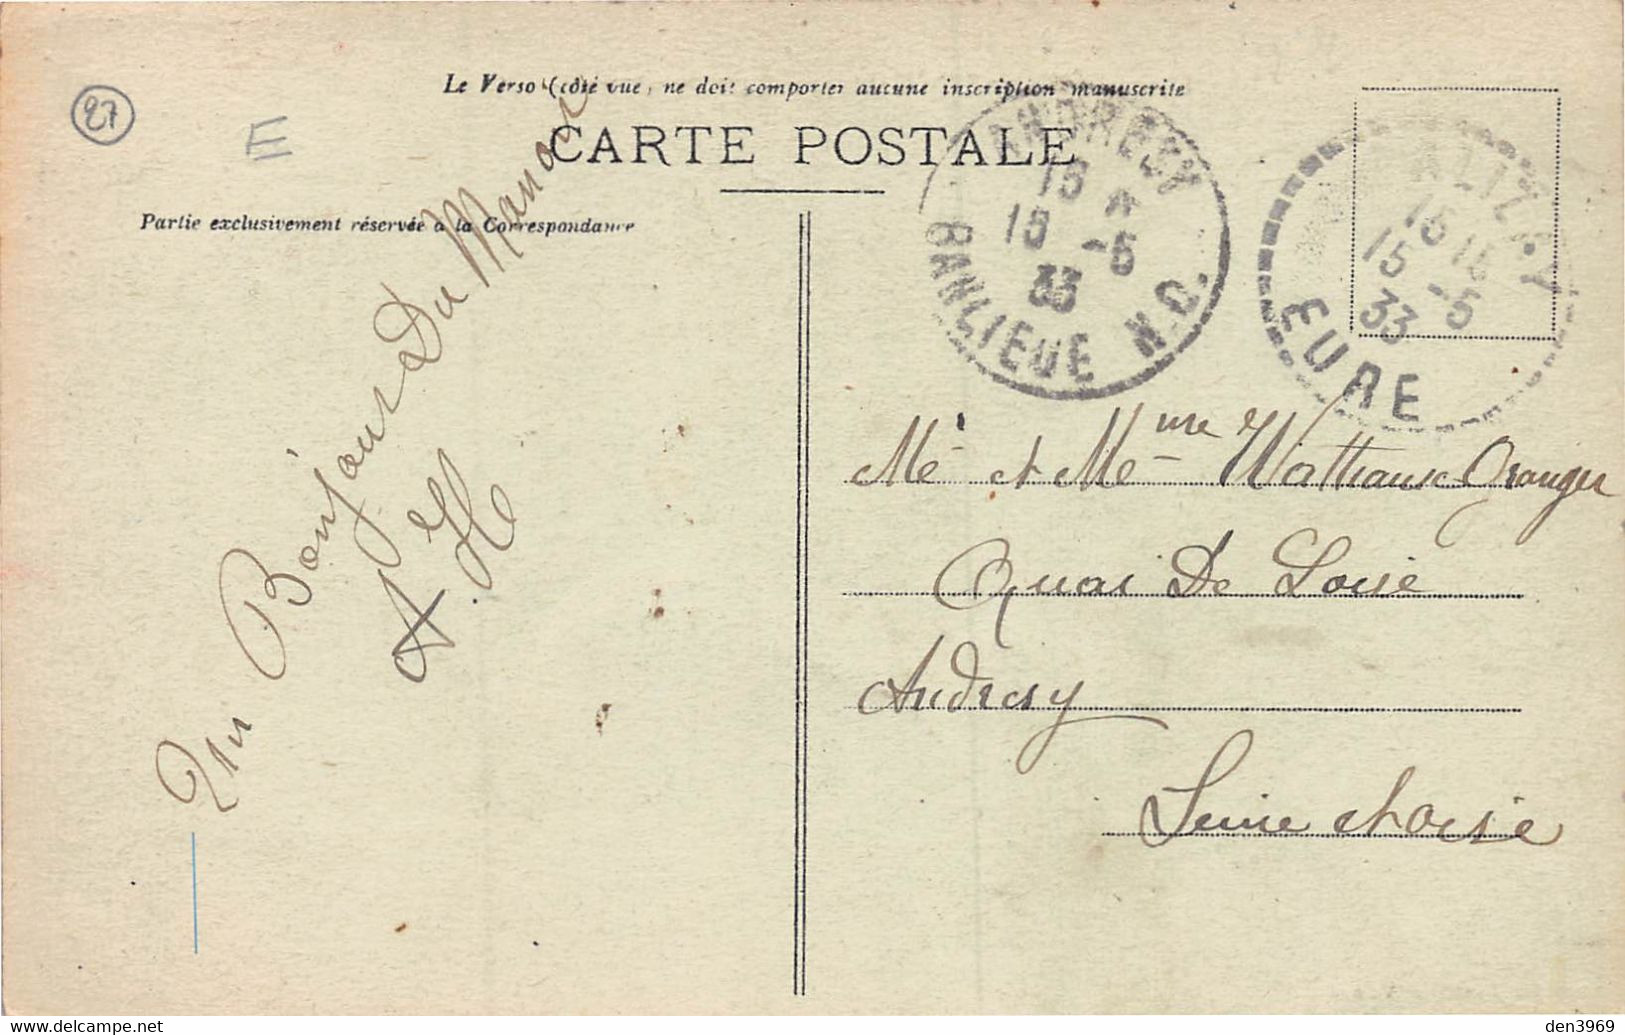 Le Verso (côté vue) ne doit comporter aucune inscription manuscrite
87
E
CARTE POSTALE
Partie exclusivement réservée à la Correspondance
ANDRESY
15
15 -5
33
BANLIEUE N.O.
15 15
15 -5
33
EURE
Un Bonjour Du Manoir
A H
Mr et Mme
Quai De Loise
Andresy
Seine et oise
den3969